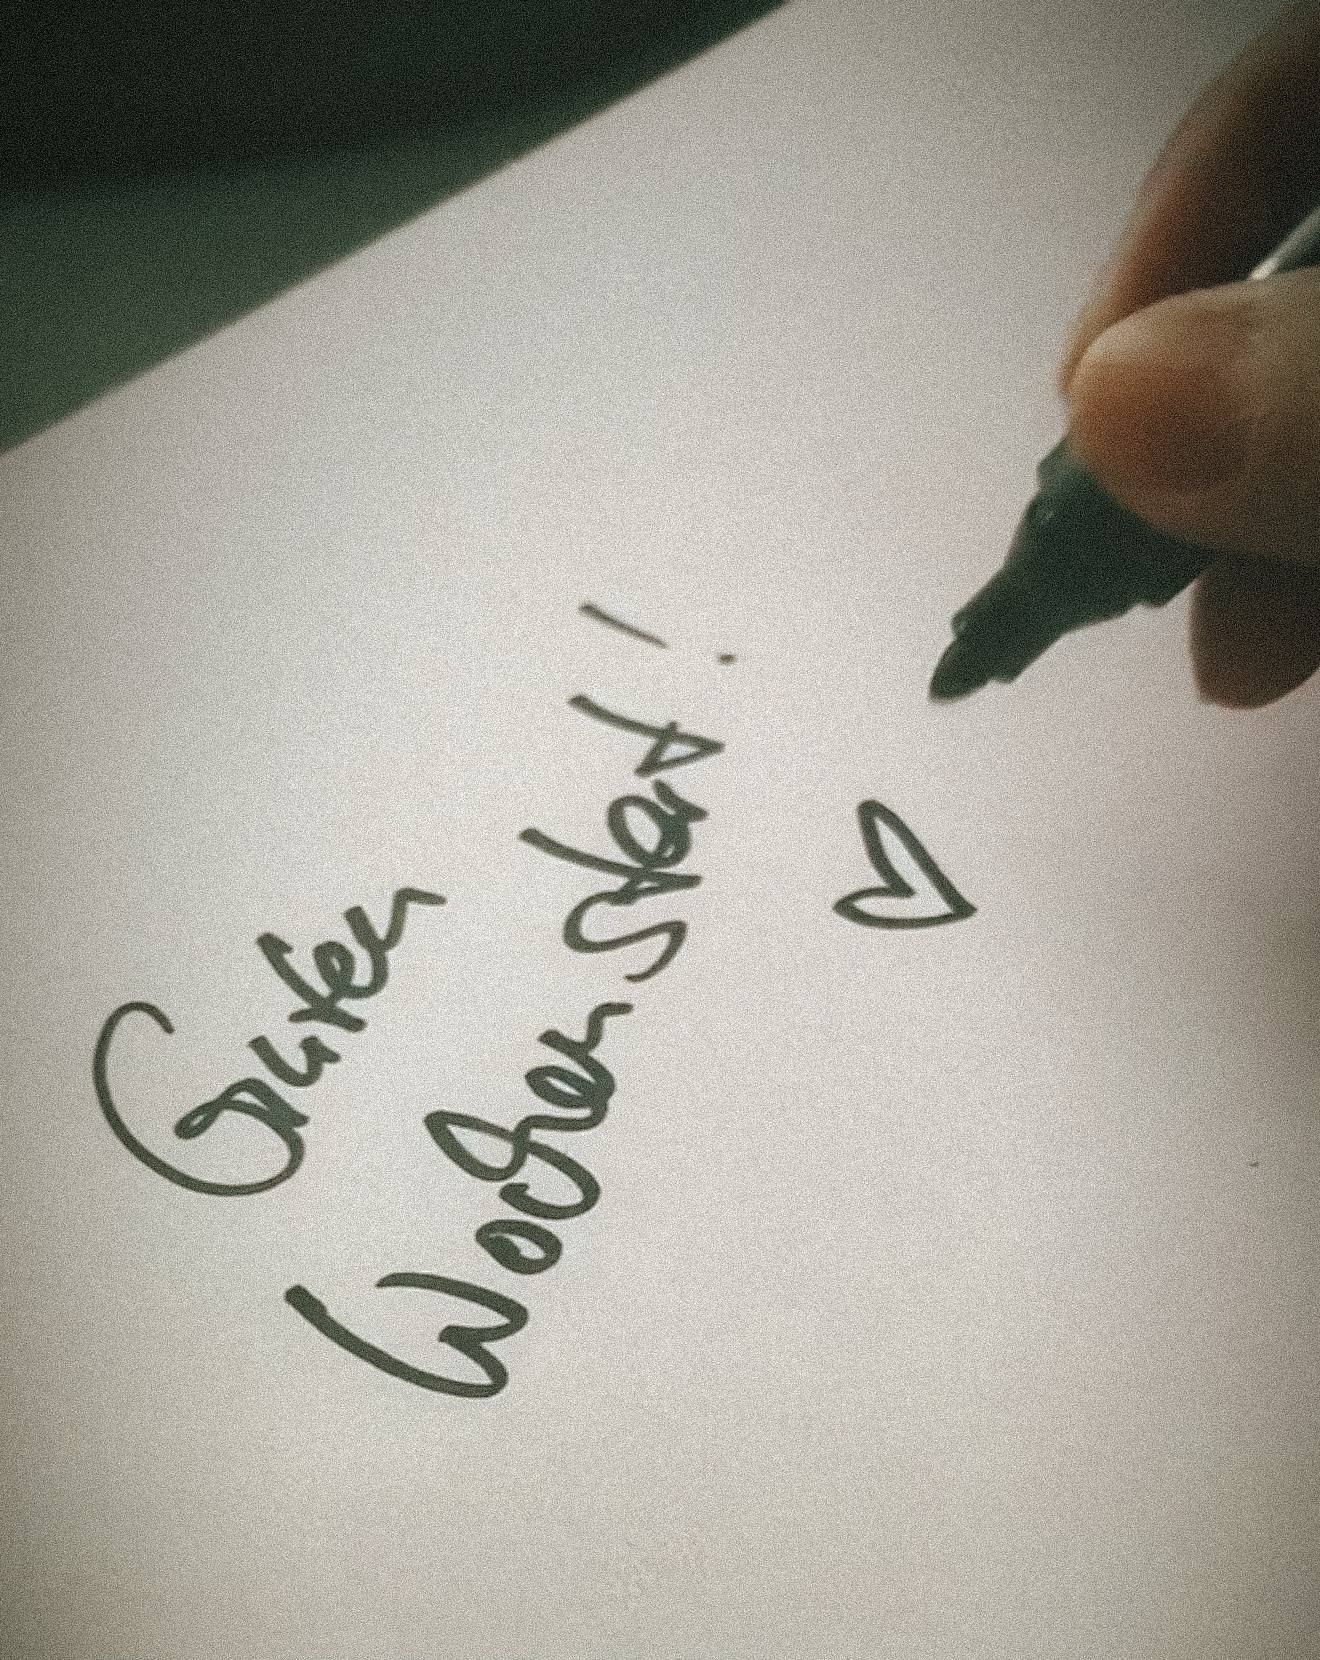 Guten
Wochenstart!
♡